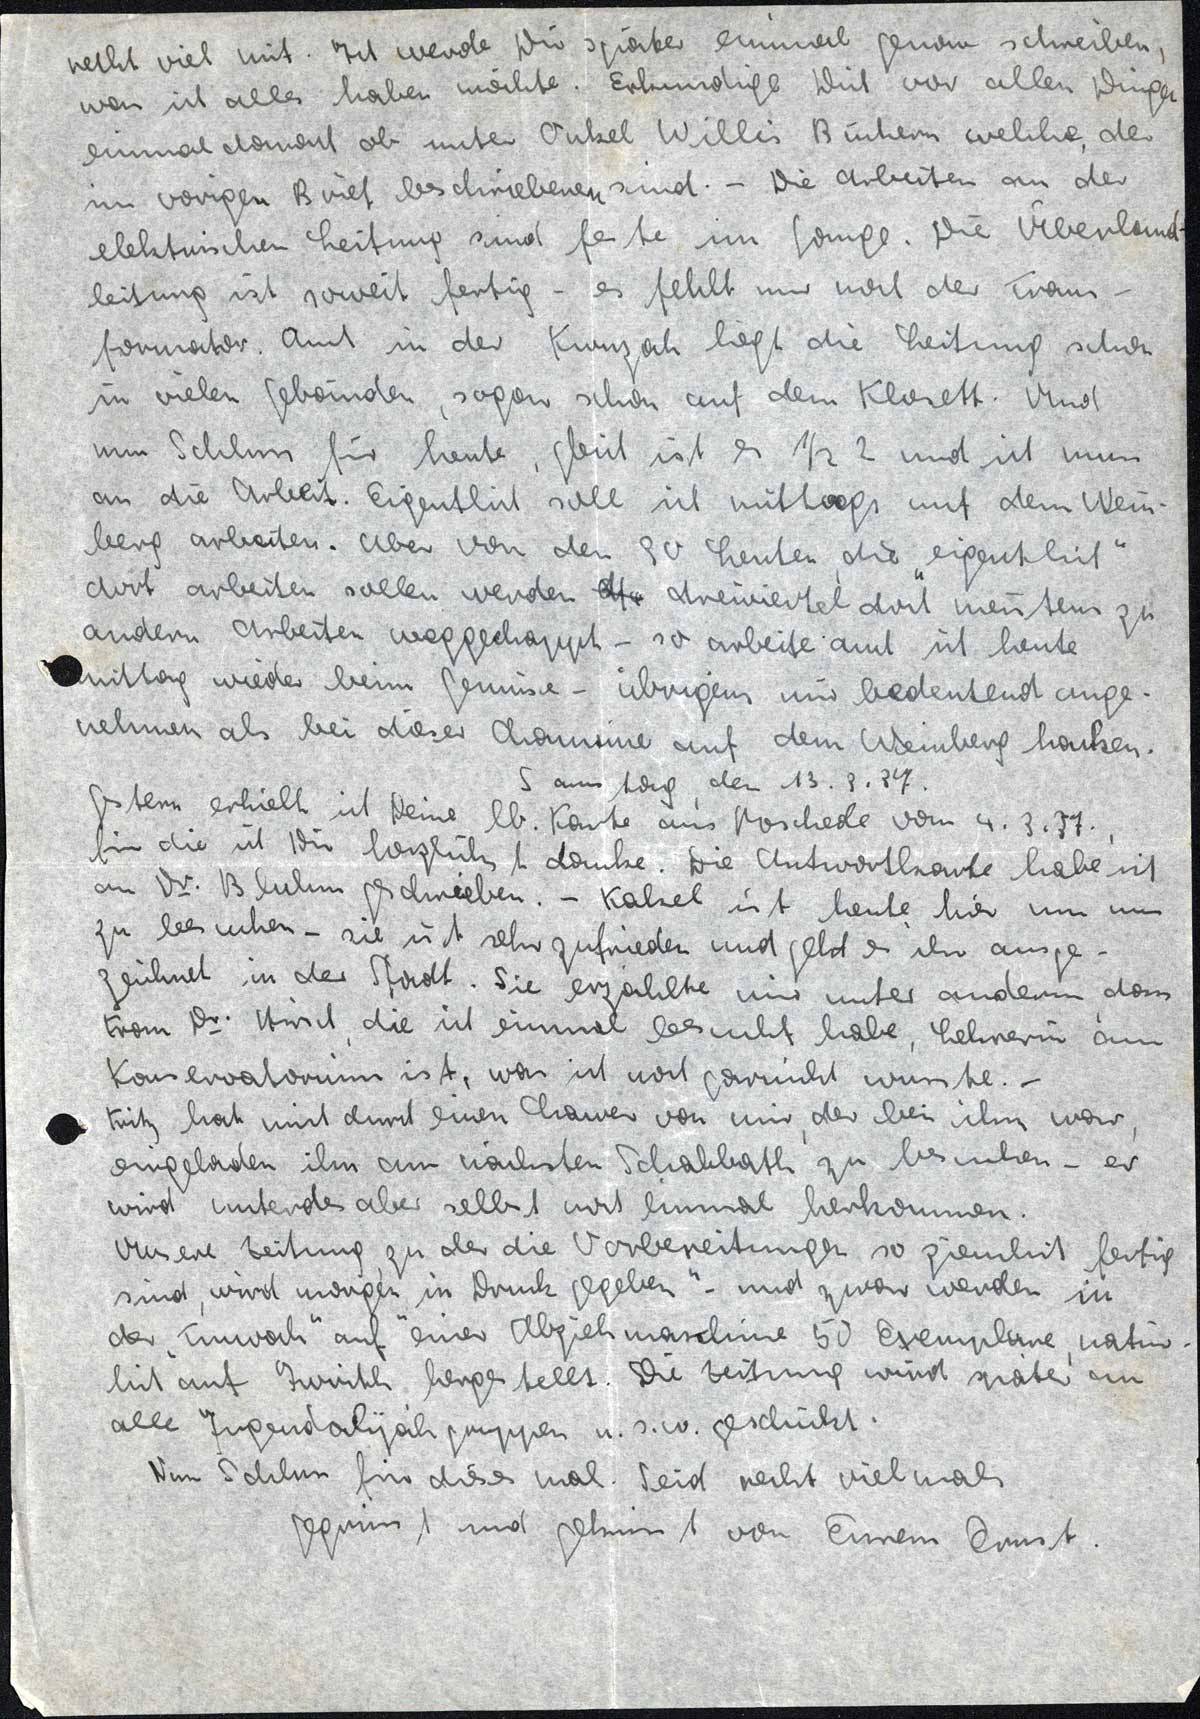 recht viel mit. Ich werde Dir später einmal genau schreiben,
was ich alles haben möchte. Erkundige Dich vor allen Dingen
einmal danach ob unter Onkel Willis Büchern welche, der
im vorigen Brief beschriebenen sind. - Die Arbeiten an der
elektrischen Leitung sind feste im Gange. Die Überland-
leitung ist soweit fertig - es fehlt nur noch der Trans-
formator. Auch in der Kwuzah liegt die Leitung schon
in vielen Gebäuden, sogar schon auf dem Klosett. Und
nun Schluss für heute, gleich ist es 1/2 2 und ich muss
an die Arbeit. Eigentlich soll ich mittags auf dem Wein-
berg arbeiten. Aber von den 30 Leuten, die "eigentlich"
dort arbeiten sollen werden dreiviertel doch meistens zu
andern Arbeiten weggeschnappt - so arbeite auch ich heute
mittag wieder beim Gemüse - übrigens mir bedeutend ange-
nehmer als bei dieser Chamsine auf dem Weinberg hacken.
Samstag, den 13.3.37.
Gestern erhielt ich Deine lb. Karte aus Moschede vom 4.3.37.,
für die ich Dir herzlichst danke. Die Antwortkarte habe ich
an Dr. Bluhm geschrieben. - Katsel ist heute hier um uns
zu besuchen - sie ist sehr zufrieden und geht es ihr ausge-
zeichnet in der Stadt. Sie erzählte mir unter anderm, dass
Frau Dr. Hirsch, die ich einmal besucht habe, Lehrerin am
Konservatorium ist, was ich noch garnicht wusste. -
Fritz hat mich durch einen Chawer von mir, der bei ihm war,
eingeladen ihn am nächsten Schabbath zu besuchen - er
wird unterdes aber selbst noch einmal herkommen.
Unsere Zeitung, zu der die Vorbereitungen so ziemlich fertig
sind, wird morgen "in Druck gegeben" - und zwar werden in
der "Tnuvah" auf einer Abziehmaschine 50 Exemplare, natür-
lich auf Iwrith hergestellt. Die Zeitung wird später an
alle Jugendalijah gruppen u.s.w. geschickt.
Nun Schluss für dieses mal. Seid recht vielmals
gegrüsst und geküsst von Eurem Ernst.